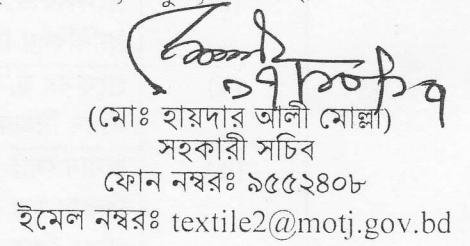 (মোঃ হায়দার আলী মোল্লা)
সহকারী সচিব
ফোন নম্বরঃ ৯৫৫২৪০৮
ইমেল নম্বরঃ textile2@motj.gov.bd